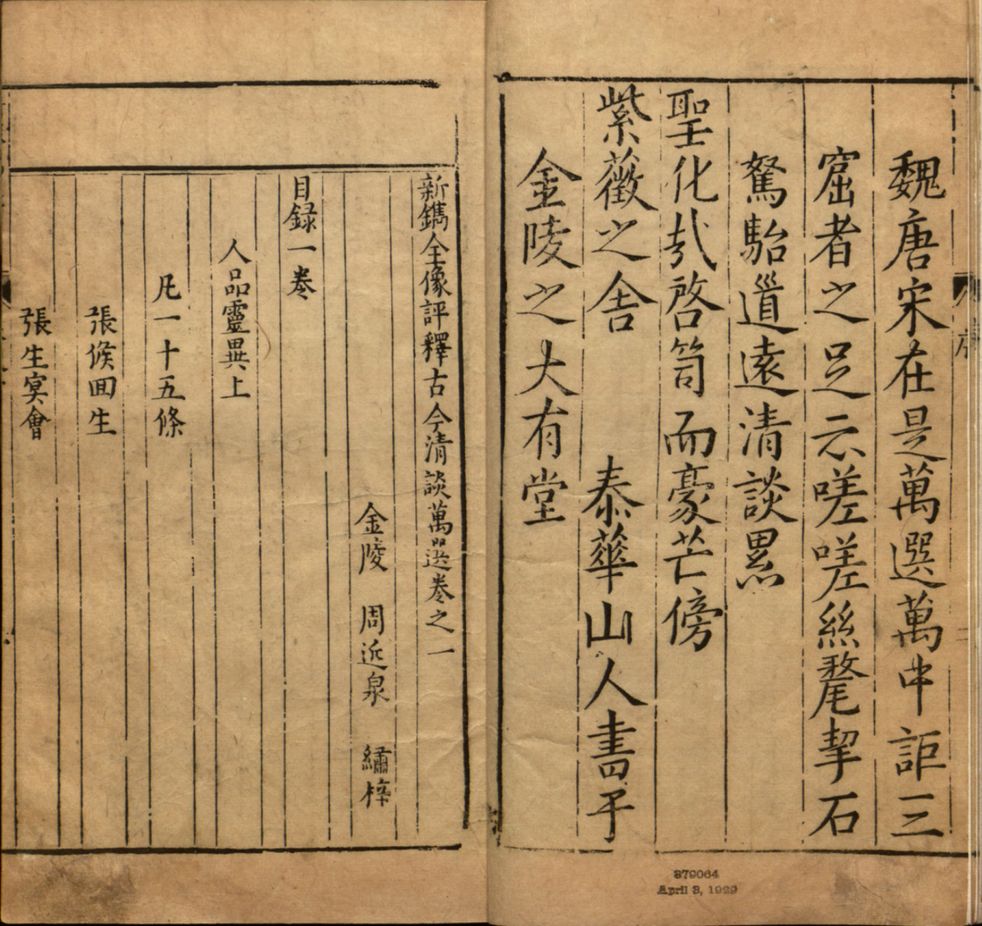 魏唐宋在是萬選萬中詎三
窟者之足云嗟嗟絲氂挈石
駑駘遐遠清談累
聖化㢤啓笥而豪芒傍
紫薇之舍 泰華山人書于
金陵之大有堂
序
879064
April 3, 1929
新鐫全像評釋古今清談萬選卷之一
金陵 周近泉 繡梓
目録一卷
人品靈異上
凡一十五條
張倏囬生
張生冥會